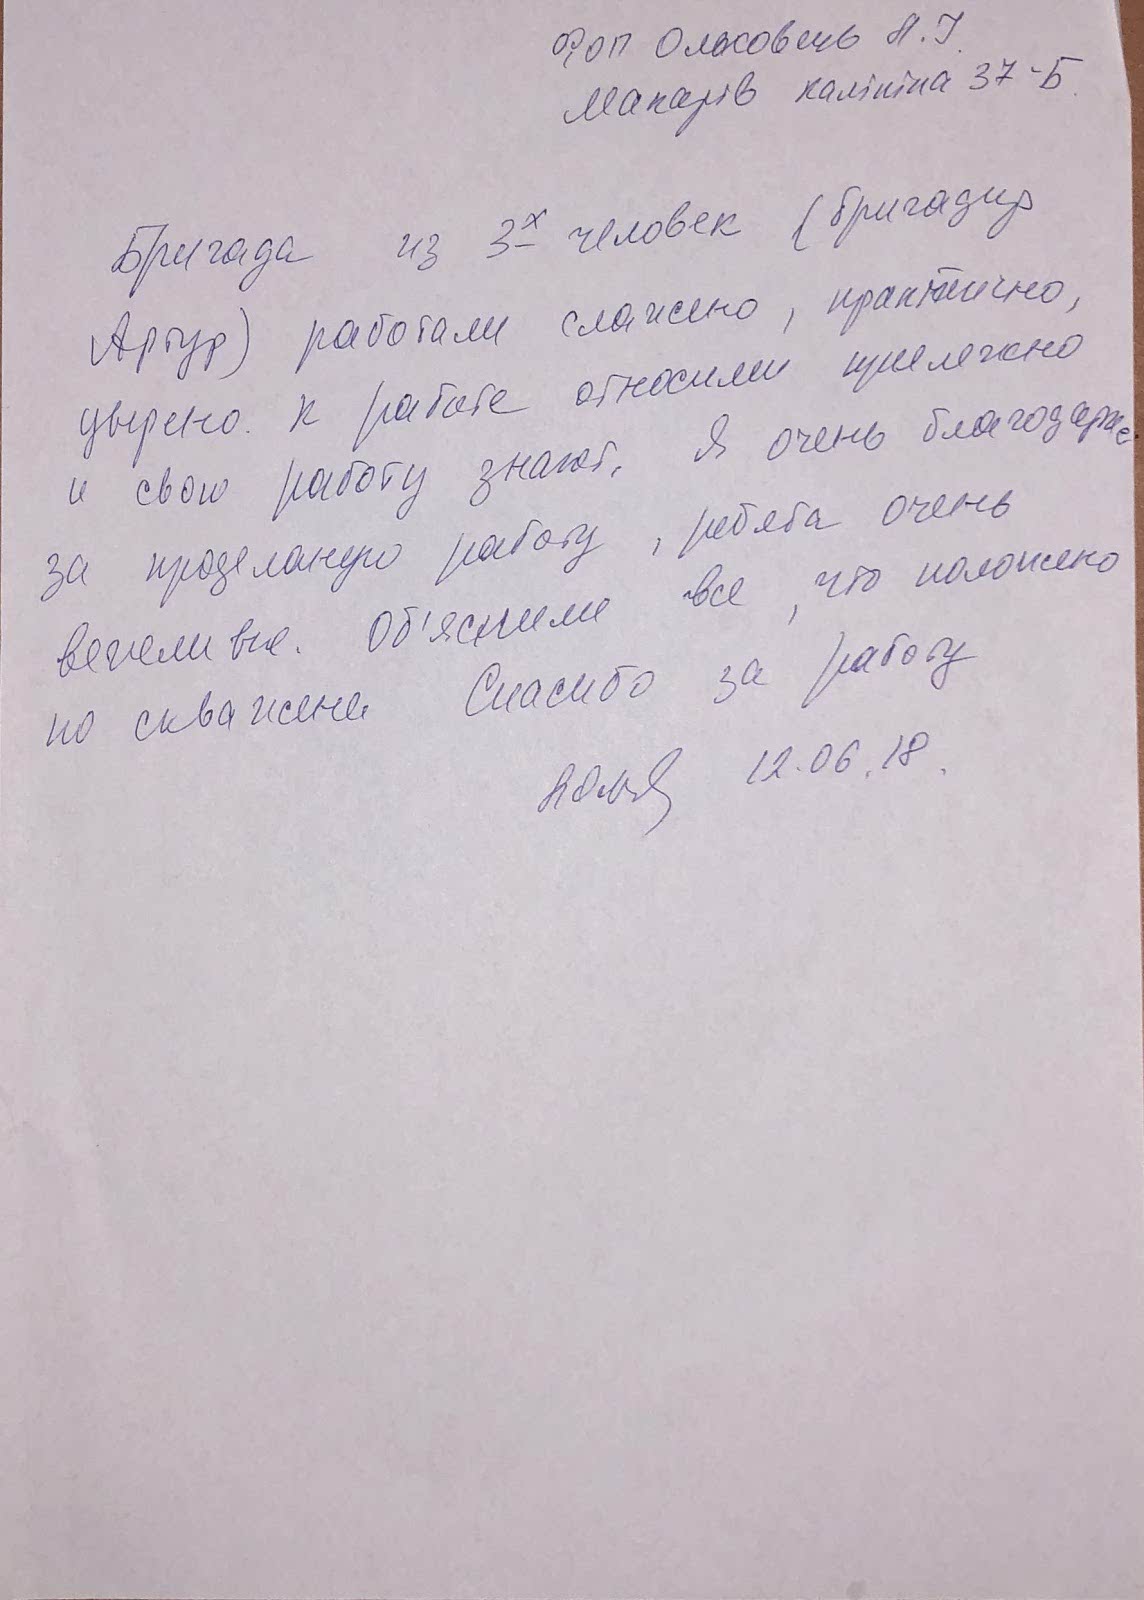 Фоп Ольховець Л.І.
Макарів Калініна 37-Б.
Бригада из 3х человек (бригадир
Артур) работали слажено, практично,
уверено. К работе относили прилежно
и свою работу знают. Я очень благодарна
за проделаную работу, ребята очень
вежеливые. Об'яснили все, что положено
по скважене Спасибо за работу
12.06.18.